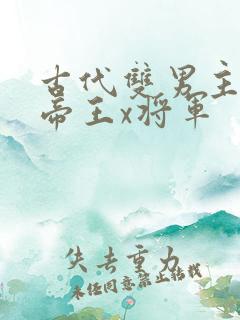 古代雙男主
帝王x将軍
失去重力
未经同意禁止转载